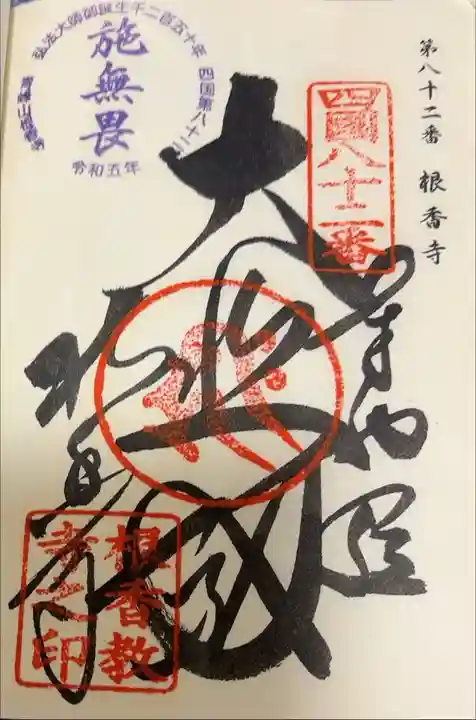 第八十二番 根香寺
四國八十二番
弘法大師御誕生千二百五十年
四国第八十二
施無畏
令和五年
奉
大悲殿
根香寺
根香教
寺之印